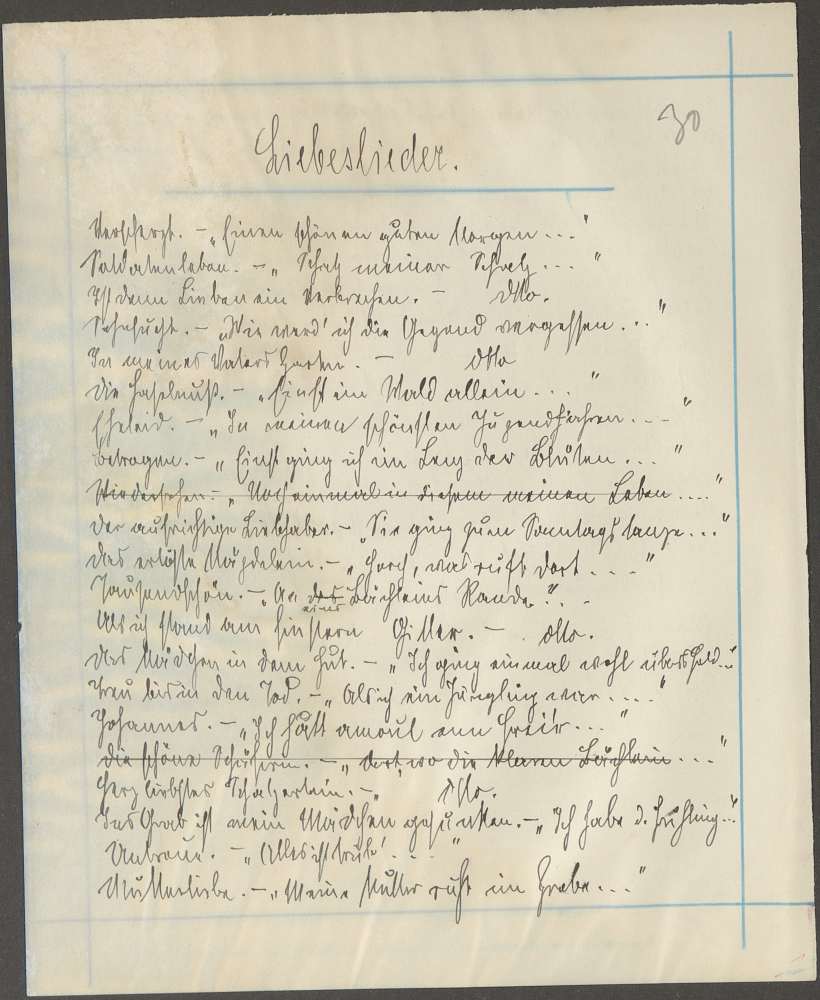 30
Liebeslieder.
Verscherzt. - „Einen schönen guten Morgen..."
Soldatenleben. - „Schatz meiner Schatz..."
Ist denn Lieben ein Verbrechen. - dtto.
Sehnsucht. - „Wie werd' ich die Gegend vergessen..."
In meines Vaters Garten. - dtto
Die Haselnuß. - „Einst im Wald allein..."
Eheleid. - „In meinen schönsten Jugendjahren..."
Betrogen. - „Einst ging ich im Lenz der Blüten..."
Wiedersehen. - „Noch einmal in diesem meinen Leben...."
Der aufrichtige Liebhaber. - „Sie ging zum Sonntagstanze..."
Das erlöste Mägdelein. - „Horch, was ruft dort..."
Tausendschön. - „An des Bächleins Rande"...
eines
Als ich stand am finstern Gitter. - dtto.
Das Mädchen in dem Hut. - „Ich ging einmal wohl übers Feld..."
Treu bis in den Tod. - „Als ich ein Jüngling war...."
Johannes. - „Ich hätt amoul enn Freir..."
Die schöne Schäferin. - „Dort, wo die klaren Bächlein..."
Herzliebstes Schatzerlein. - „ dtto.
Ins Grab ist mein Mädchen gesunken. - „Ich habe d. Frühling..."
Untreue. - „Alles ist trüb'..."
Mutterliebe. - „Meine Mutter ruht im Grabe..."